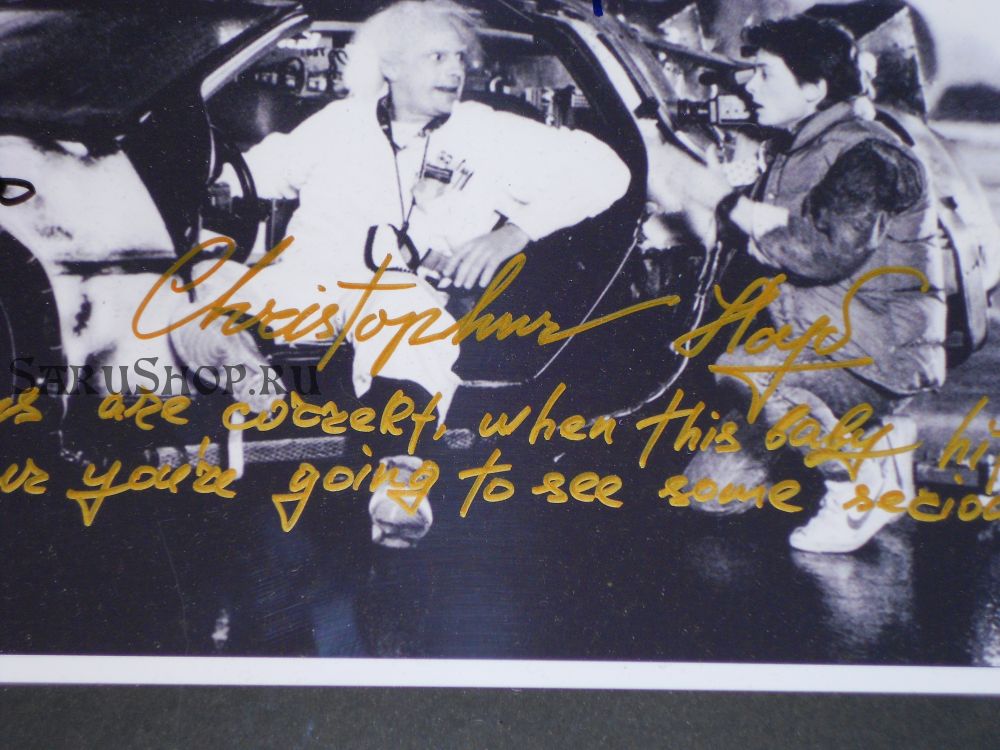 Christopher Lloyd
SARUSHOP.RU
are correkt, when this baby hi
ur you're going to see some seriou